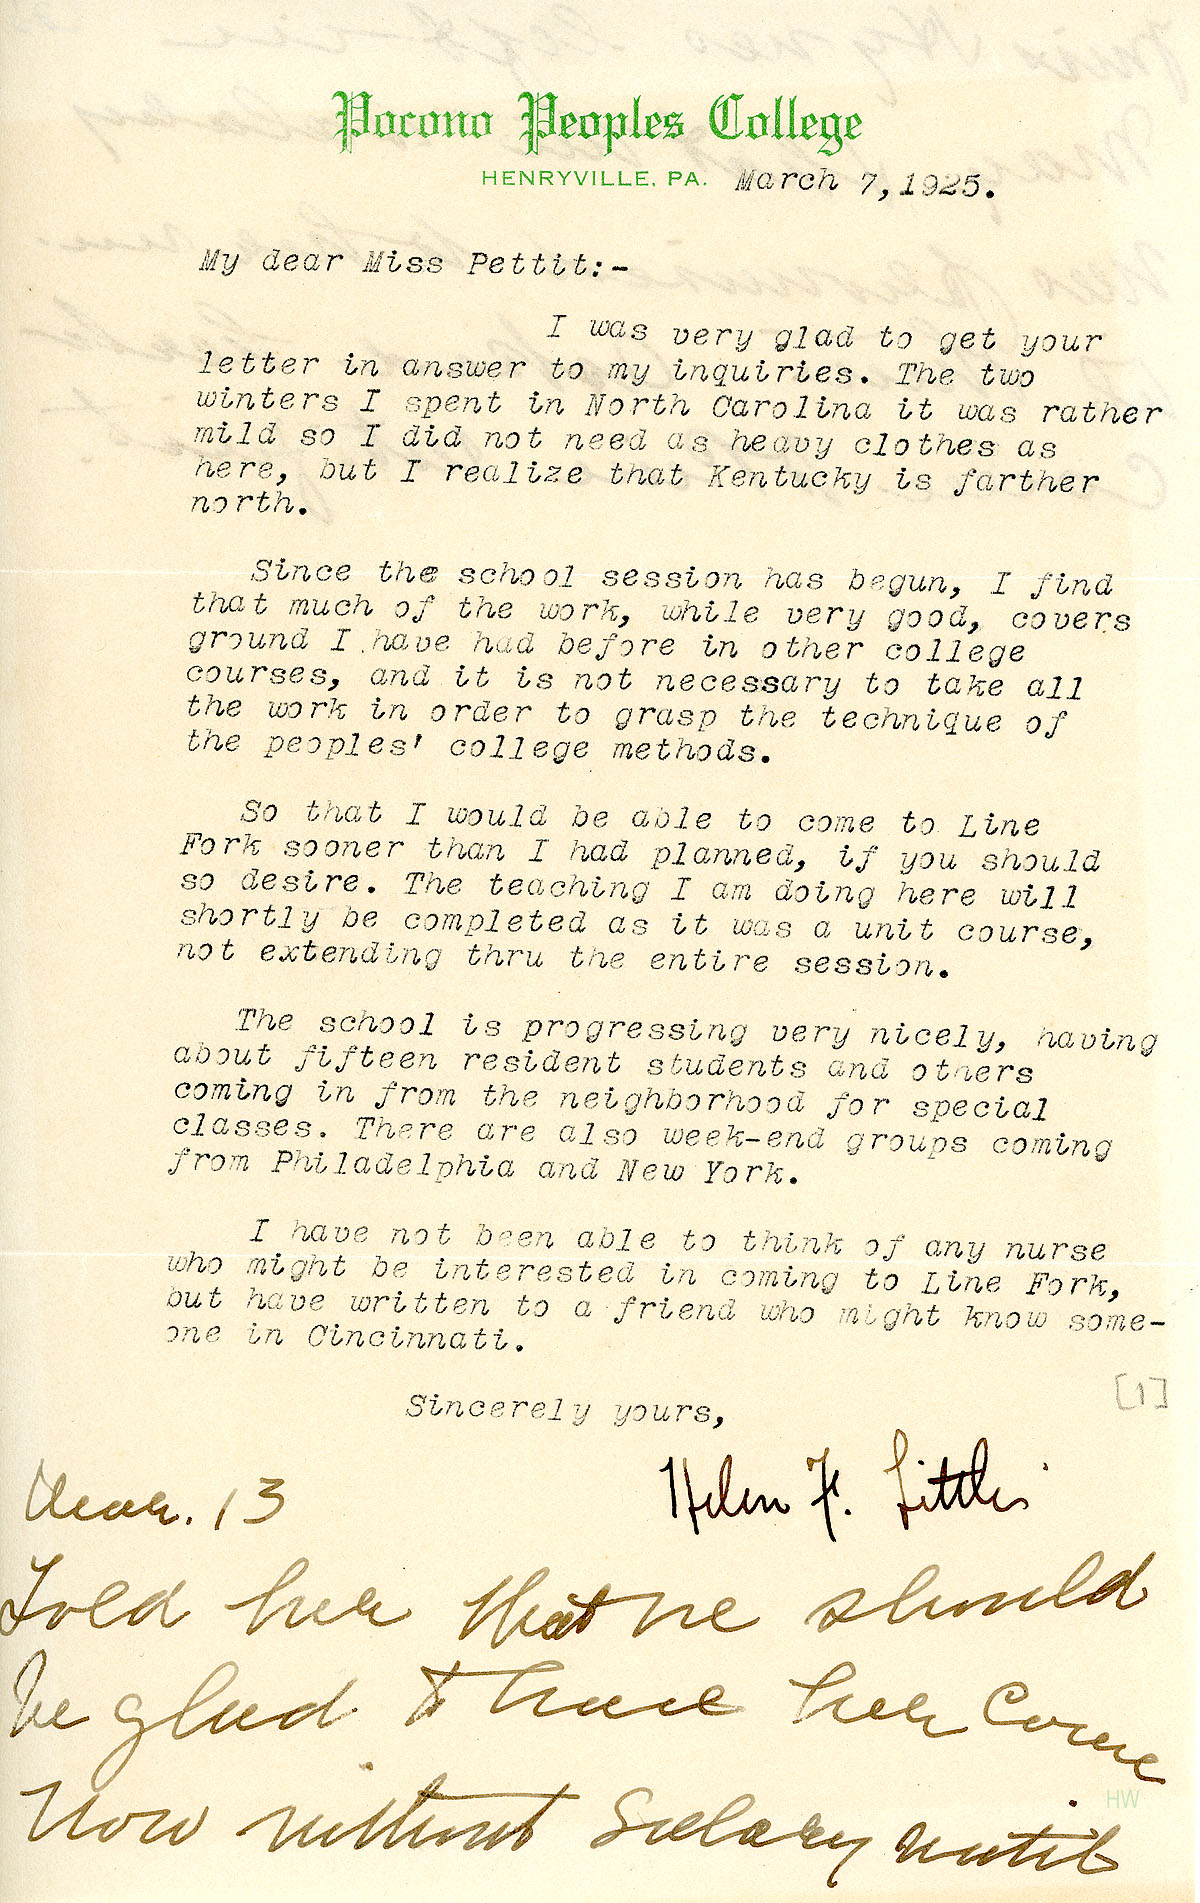 Pocono Peoples College
HENRYVILLE, PA. March 7, 1925.
My dear Miss Pettit:-
I was very glad to get your
letter in answer to my inquiries. The two
winters I spent in North Carolina it was rather
mild so I did not need as heavy clothes as
here, but I realize that Kentucky is farther
north.
Since the school session has begun, I find
that much of the work, while very good, covers
ground I have had before in other college
courses, and it is not necessary to take all
the work in order to grasp the technique of
the peoples' college methods.
So that I would be able to come to Line
Fork sooner than I had planned, if you should
so desire. The teaching I am doing here will
shortly be completed as it was a unit course,
not extending thru the entire session.
The school is progressing very nicely, having
about fifteen resident students and others
coming in from the neighborhood for special
classes. There are also week-end groups coming
from Philadelphia and New York.
I have not been able to think of any nurse
who might be interested in coming to Line Fork,
but have written to a friend who might know some-
one in Cincinnati.
Sincerely yours,
[1]
Helen F.
Mar. 13
Told her that we should
be glad to have her come
now without salary until
HW